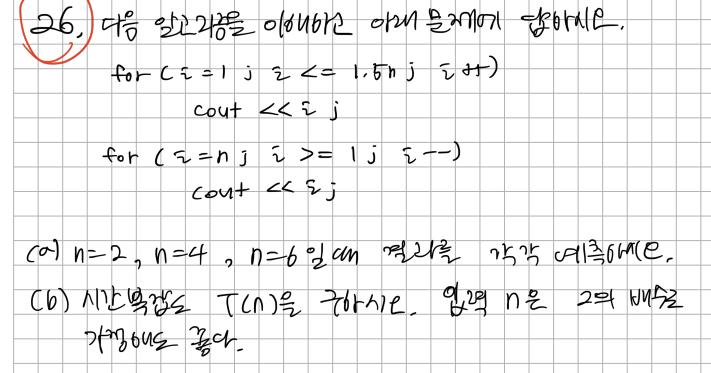 26. 다음 알고리즘을 이해하고 아래 문제에 답하시오.
for ( i = 1 ; i <= 1.5n ; i ++)
cout << i ;
for ( i = n ; i >= 1 ; i --)
cout << i ;
(a) n=2, n=4, n=6 일 때 결과를 각각 예측하시오.
(b) 시간 복잡도 T(n)을 구하시오. 입력 n은 2의 배수로
가정해도 좋다.